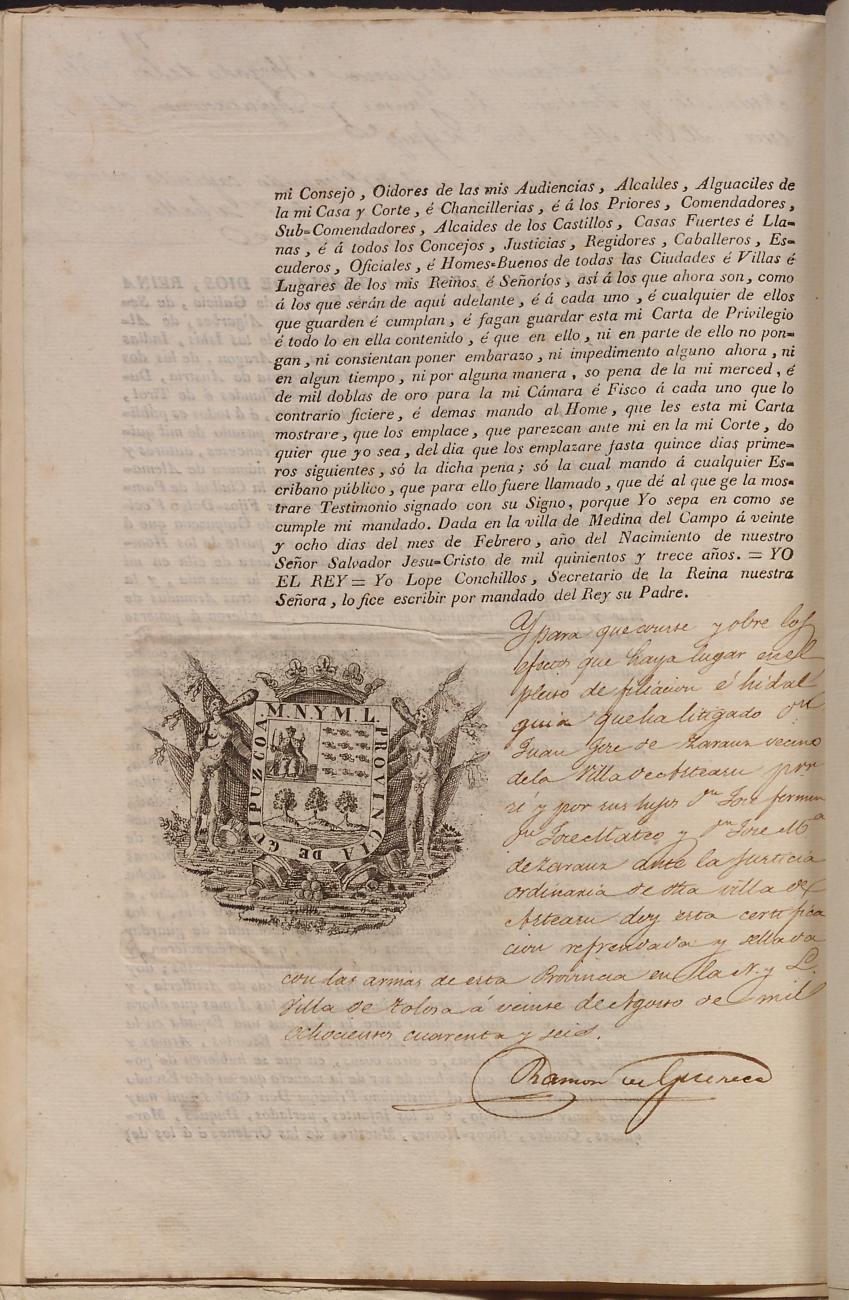 mi Consejo, Oidores de las mis Audiencias, Alcaldes, Alguaciles de
la mi Casa y Corte, é Chancillerias, é á los Priores, Comendadores,
Sub-Comendadores, Alcaides de los Castillos, Casas Fuertes é Lla-
nas, é á todos los Concejos, Justicias, Regidores, Caballeros, Es-
cuderos, Oficiales, é Homes-Buenos de todas las Ciudades é Villas é
Lugares de los mis Reinos é Señoríos, asi á los que ahora son, como
á los que serán de aquí adelante, é á cada uno, é cualquier de ellos
que guarden é cumplan, é fagan guardar esta mi Carta de Privilegio
é todo lo en ella contenido, é que en ello, ni en parte de ello no pon-
gan, ni consientan poner embarazo, ni impedimento alguno ahora, ni
en algun tiempo, ni por alguna manera, so pena de la mi merced, é
de mil doblas de oro para la mi Cámara é Fisco á cada uno que lo
contrario ficiere, é demas mando al Home, que les esta mi Carta
mostrare, que los emplace, que parezcan ante mi en la mi Corte, do
quier que yo sea, del dia que los emplazare fasta quince dias prime-
ros siguientes, só la dicha pena; só la cual mando á cualquier Es-
cribano público, que para ello fuere llamado, que dé al que ge la mos-
trare Testimonio signado con su Signo, porque Yo sepa en como se
cumple mi mandado. Dada en la villa de Medina del Campo á veinte
y ocho dias del mes de Febrero, año del Nacimiento de nuestro
Señor Salvador Jesu-Cristo de mil quinientos y trece años. = YO
EL REY = Yo Lope Conchillos, Secretario de la Reina nuestra
Señora, lo fice escribir por mandado del Rey su Padre.
M. N. Y M. L. PROVINCIA DE GUIPUZCOA
Y para que conste y obre los
efectos que haya lugar en el
pleito de filiacion é hidal
guia que ha litigado Dn.
Juan Jose de Zarauz vecino
de la Villa de Asteasu por
sí y por sus hijos Dn. José Fermin
Dn. Jose Mateo y Dn. Jose Ma
de Zarauz ante la Justicia
ordinaria de dha villa de
Asteasu doy esta certifica
cion refrendada y sellada
con las armas de esta Provincia en la N. y L.
Villa de Tolosa á veinte de Agosto de mil
ochocientos cuarenta y seis.
Ramon de Guereca